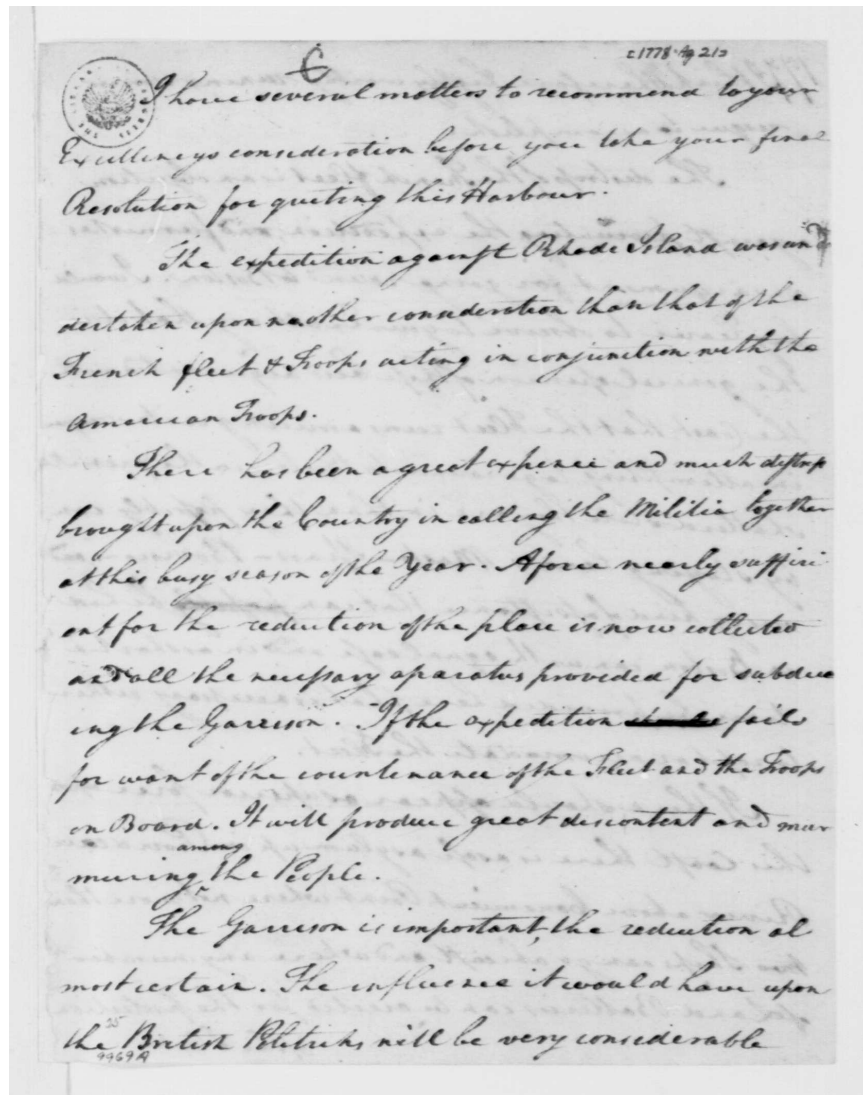 C
c1778. Ag 21
I have several matters to recommend to your
Excellencys consideration before you take your final
Resolution for quiting this Harbour.
The expedition against Rhode Island was un
dertaken upon no other consideration than that of the
French fleet & Troops acting in conjunction with the
American Troops.
There has been a great expence and much distress
brought upon the Country in calling the Militia together
at this busy season of the Year. A force nearly suffici
ent for the reduction of the place is now collected
and all the necessary aparatus provided for subdue
ing the Garrison. If the expedition fails
for want of the countenance of the Fleet and the Troops
on Board. It will produce great discontent and mur
muring among the People.
The Garrison is important, the reduction al
most certain. The influence it would have upon
the British Politicks will be very considerable
25
9969A